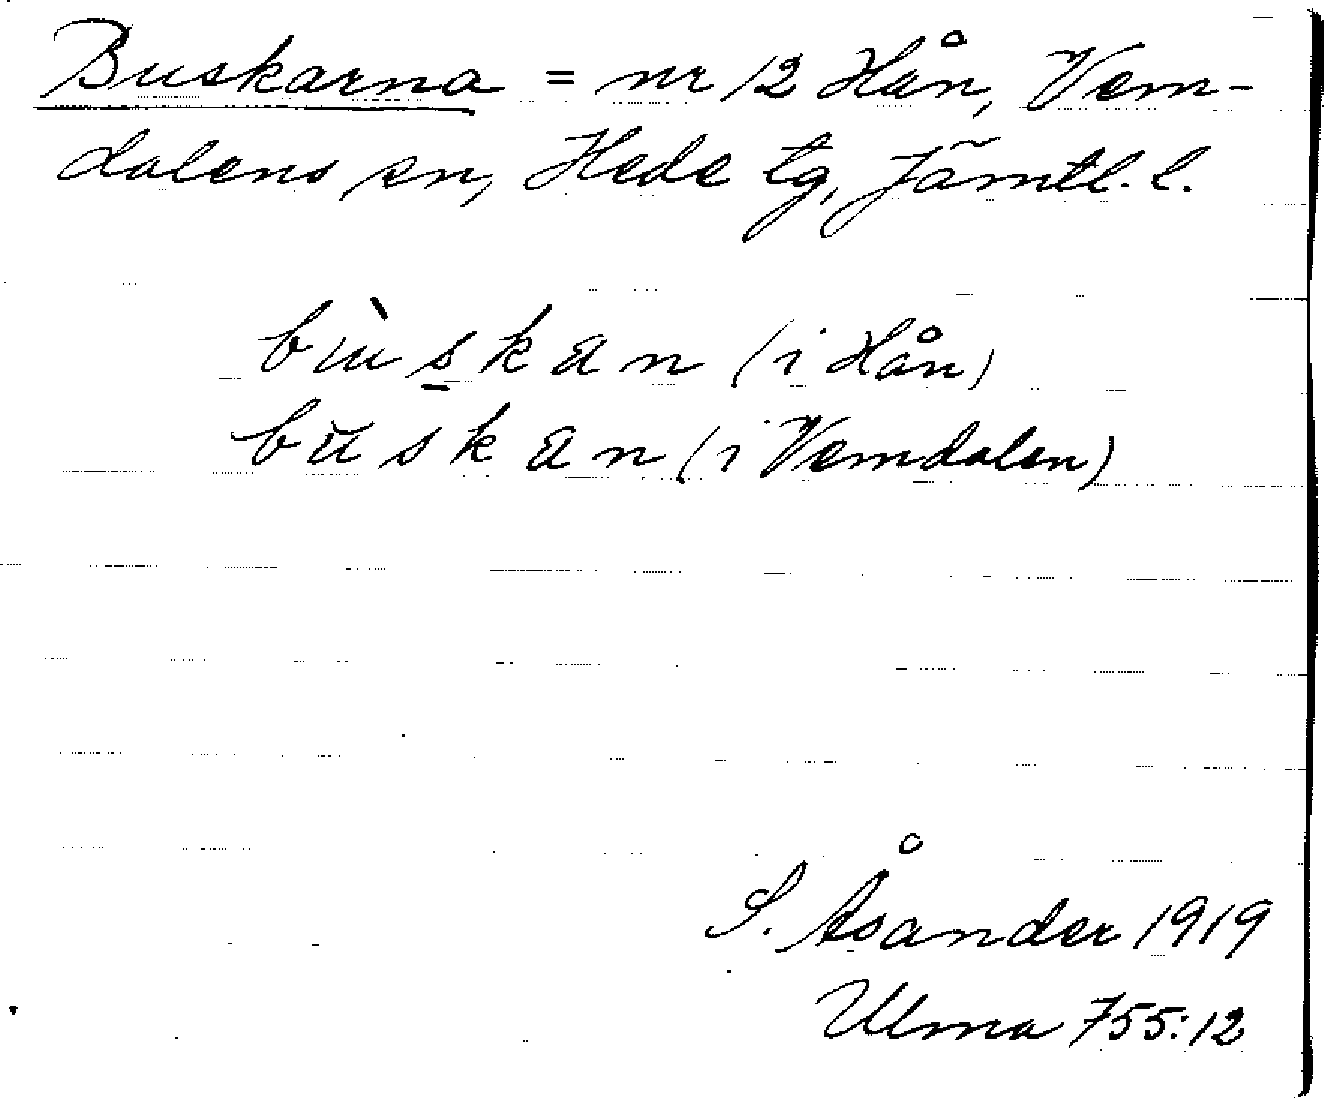 Buskarna = nr 12 Hån, Vem-
dalens sn, Hede tg, Jämtl. l.
bùskan (i Hån)
buskan (i Vemdalen)
S. Åsander 1919
Ulma 755:12